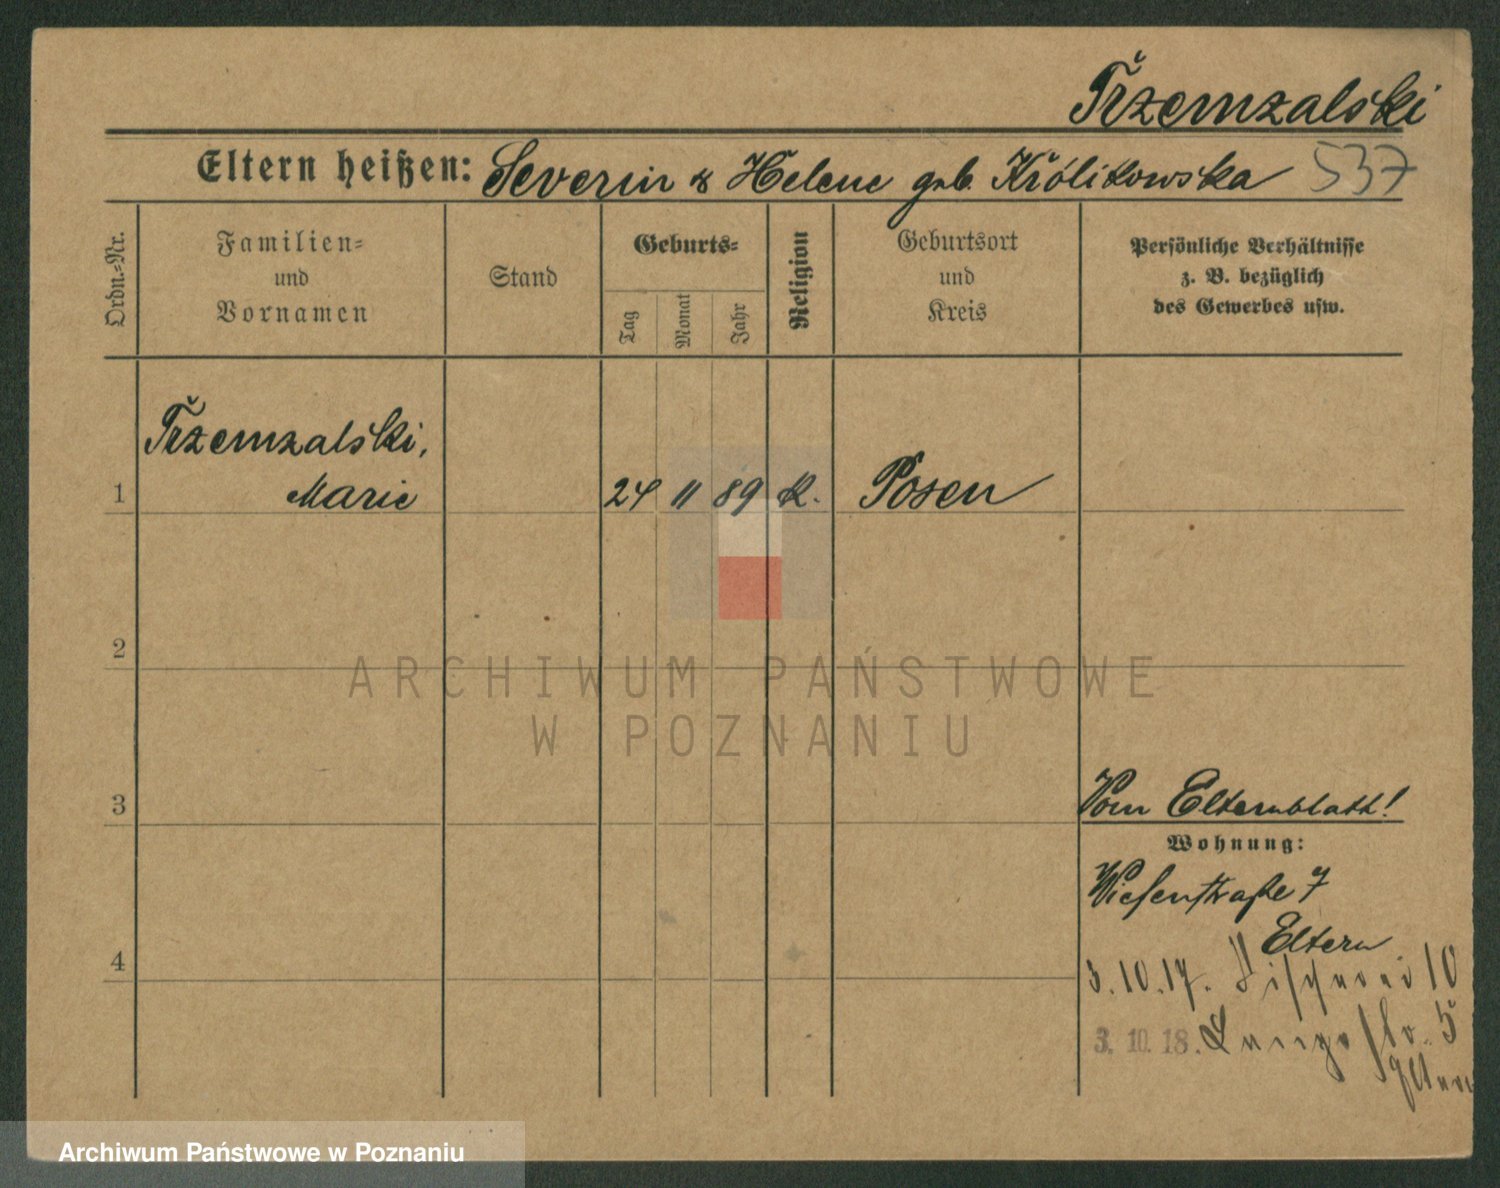 Trzemzalski
Eltern heißen: Severin & Helene geb. Królikowska 537
Ordn.=Nr.
Familien=
und
Vornamen
Stand
Geburts=
Tag
Monat
Jahr
Religion
Geburtsort
und
Kreis
Persönliche Verhältnisse
z. B. bezüglich
des Gewerbes usw.
Trzemzalski,
1 Marie 24 11 89 K. Posen
2
ARCHIWUM PAŃSTWOWE
W POZNANIU
3 Vom Elternblatt!
Wohnung:
Wiesenstraße 7
Eltern
4
3.10.17. Fischerei 10
3.10.18. Langestr. 5
Eltern
Archiwum Państwowe w Poznaniu